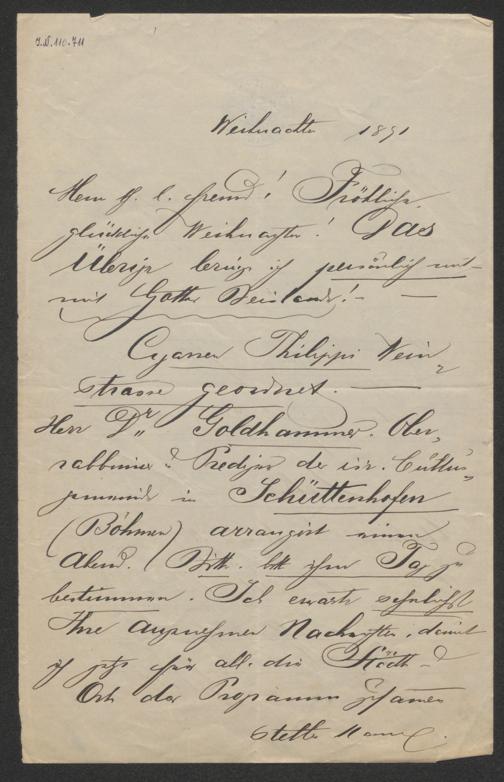 J.N. 110.711
Weihnachten 1891
Mein h. l. Freund! Fröhliche,
glückliche Weihnachten! Das
Übrige bringe ich persönlich mit
mit Gottes Beistande! —
Cyanen Philippi Wein
strasse geordnet. —
Herr Dr Goldhammer. Ober,
rabbiner & Prediger der isr. Cultus,
gemeinde in Schüttenhofen
(Böhmen) arrangirt einen
Abend. Bitte. ihm Tag zu
bestimmen. Ich erwarte sehnlichst
Ihre angenehmen Nachrichten, damit
ich jetzt für alle die Städte &
Orte das Programm zusammen
stellen kann.